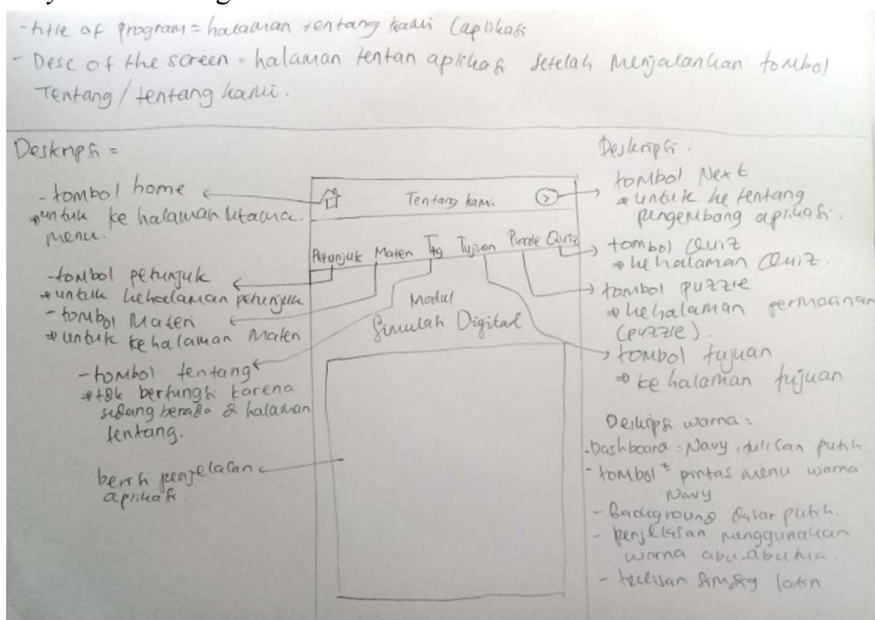 - title of program = halaman tentang kami (aplikasi
- Desc of the screen = halaman tentan aplikasi setelah menjalankan tombol
Tentang / tentang kami.
Deskripsi =
- tombol home
untuk ke halaman utama.
menu.
- tombol petunjuk
untuk kehalaman petunjuk
- tombol Materi
untuk ke halaman Materi
- tombol tentang
tdk berfungsi karena
sedang berada di halaman
tentang.
berisi penjelasan
aplikasi.
Tentang kami
Petunjuk Materi Ttg Tujuan Puzzle Quiz
Modul
Simulasi Digital
Deskripsi.
tombol Next
untuk ke tentang
pengembang aplikasi.
tombol Quiz
ke halaman Quiz.
tombol puzzle
ke halaman permainan
(puzzle).
tombol tujuan
ke halaman tujuan
Deskripsi warna =
- Dashboard = Navy, tulisan putih
- tombol² pintas menu warna
Navy
- Background dasar putih.
- penjelasan menggunakan
warna abu-abu
- tulisan latin